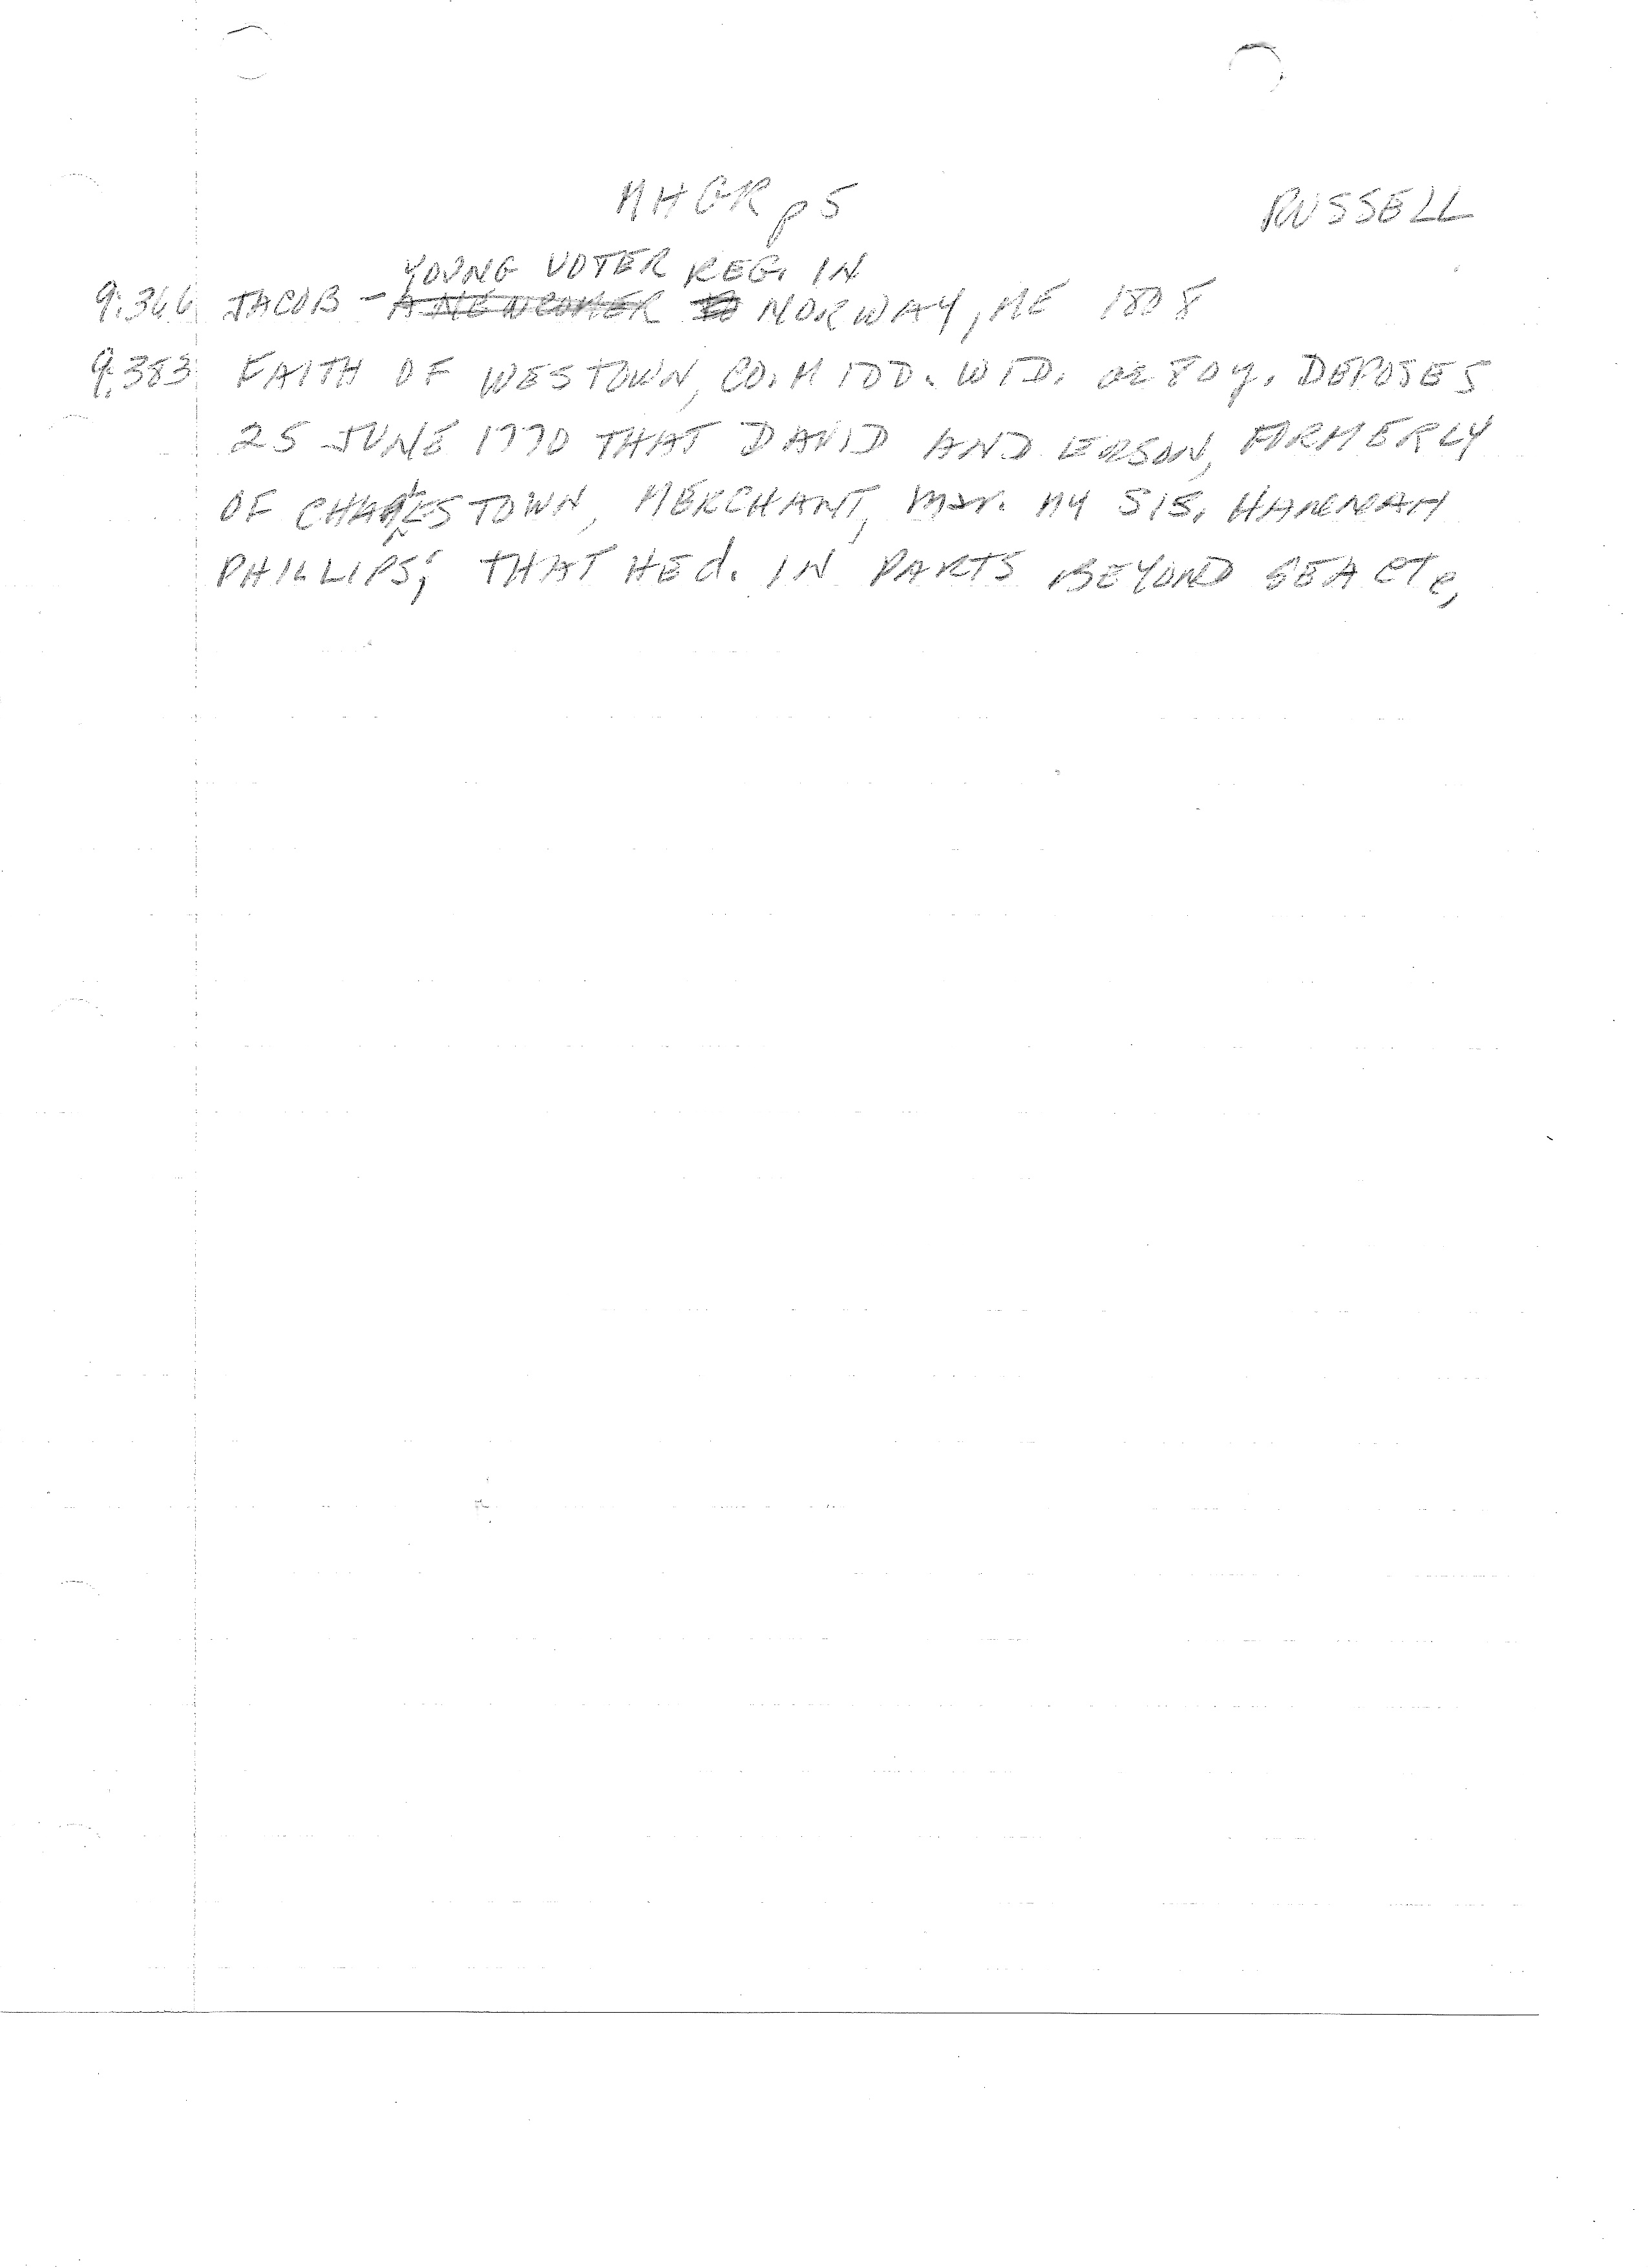 MHGR p5 RUSSELL
YOUNG VOTER REG. IN
9:366 JACOB - A NEWCOMER TO NORWAY, ME 1808
9:383 FAITH OF WESTOWN, CO. MIDD. WID. ae 80 y. DEPOSES
25 JUNE 1770 THAT DAVID ANDERSON, FORMERLY
OF CHARLESTOWN, MERCHANT, mar. MY SIS. HANNAH
PHILLIPS; THAT HE d. IN PARTS BEYOND SEA etc,